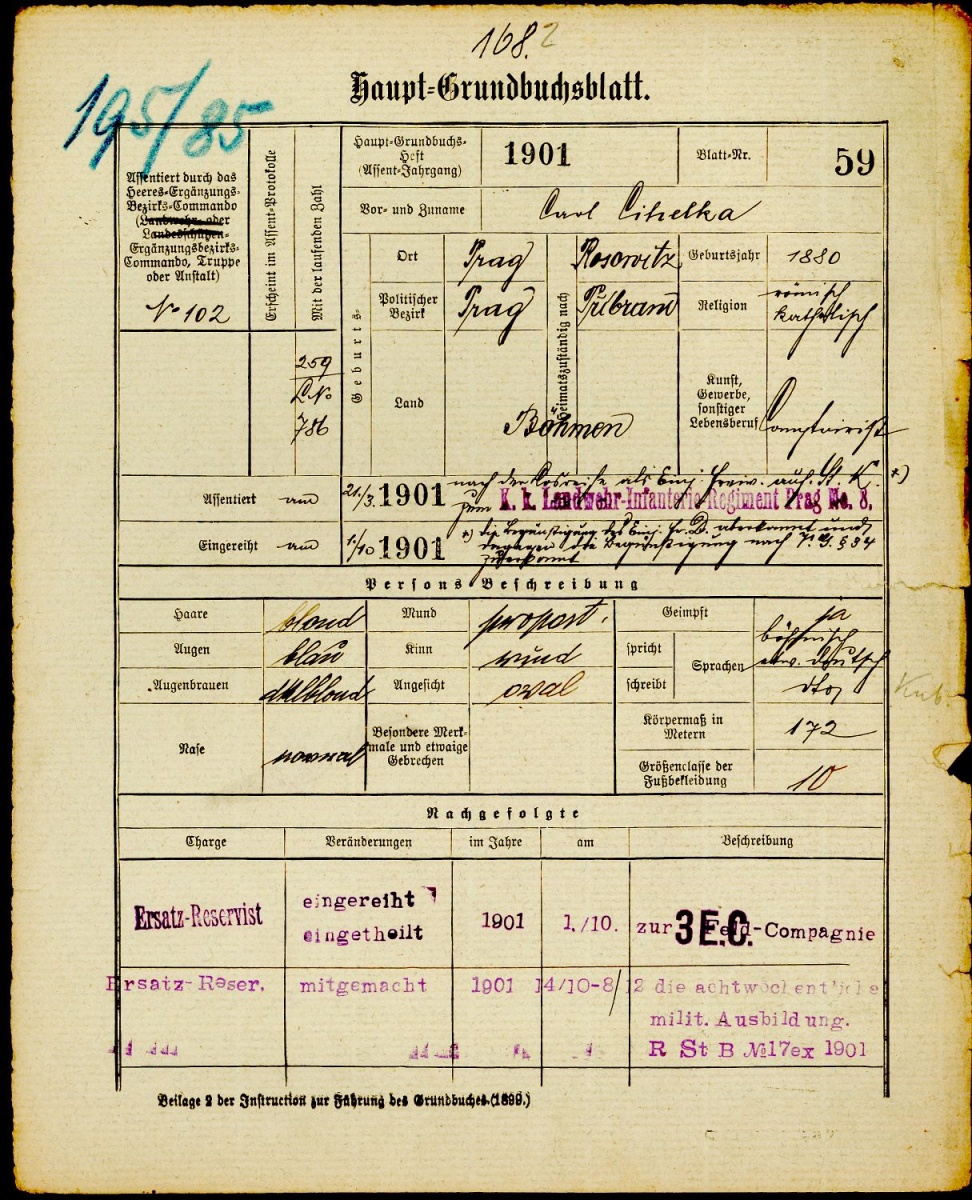 168.2
195/85
Haupt-Grundbuchsblatt.
Assentiert durch das
Heeres-Ergänzungs-
Bezirks-Commando
(Landwehr- oder
Landesschützen-
Ergänzungsbezirks-
Commando, Truppe
oder Anstalt)
No 102
Erscheint im Assent-Protokolle
Mit der laufenden Zahl
259
786
Haupt-Grundbuchs-
Heft
(Assent-Jahrgang)
1901
Blatt-Nr.
59
Vor- und Zuname
Carl Cihelka
Geburts-
Ort
Prag
Heimatszuständig nach
Rosowitz
Geburtsjahr
1880
Politischer
Bezirk
Prag
Přibram
Religion
römisch
katholisch
Land
Böhmen
Kunst,
Gewerbe,
sonstiger
Lebensberuf
Comptoirist
Assentiert am 21./3. 1901
nach der als Einj. Freiw. auf St. K. *)
zum K. k. Landwehr-Infanterie-Regiment Prag No. 8.
Eingereiht am 1./10 1901
*) die Begünstigung des Einj. Fr. D. aberkannt und
dagegen die Begünstigung nach § 34
zuerkannt
Persons Beschreibung
Haare blond
Mund proport.
Geimpft ja
Augen blau
Kinn rund
spricht
schreibt
Sprachen
böhmisch
etw. deutsch
dto
Augenbrauen dklblond
Angesicht oval
Nase normal
Besondere Merk-
male und etwaige
Gebrechen
Körpermaß in
Metern
172
Größenclasse der
Fußbekleidung
10
Nachgefolgte
Charge Veränderungen im Jahre am Beschreibung
Ersatz-Reservist
eingereiht
eingetheilt
1901 1./10. zur 3 E.C. Feld-Compagnie
Ersatz-Reser. mitgemacht 1901 14/10-8/12 die achtwöchentliche
milit. Ausbildung.
R St B No 17 ex 1901
Beilage 2 der Instruction zur Führung des Grundbuches (1899.)